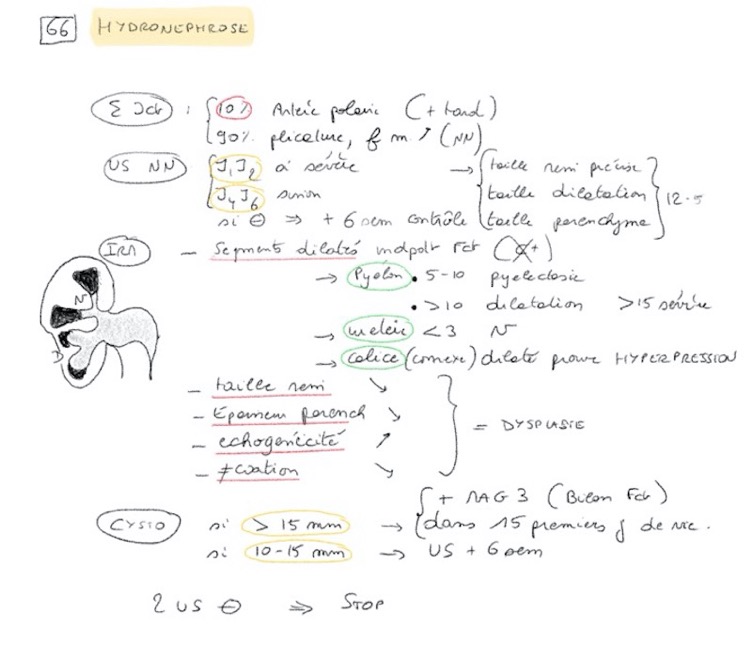 66 HYDRONEPHROSE
Σ Jct : 10% Artère polaire (+ tard)
90% plicature, f m ↗ (NN)
US NN J1J2 si sévère → taille rein précise
J4J6 sinon taille dilatation 12.5
si ⊖ ⇒ + 6 sem contrôle taille parenchyme
IRM - Segments dilatés indpdt Fct
→ Pyélon • 5-10 pyelectasie
• >10 dilatation >15 sévère
→ uretère <3 N
→ calice (convexe) dilaté prouve HYPERPRESSION
- taille rein ↘
- Epaisseur parench ↘
- echogénicité ↗ = DYSPLASIE
- ≠ciation ↘
CYSTO si > 15 mm → + MAG 3 (Bilan Fct)
dans 15 premiers j de vie.
si 10-15 mm → US + 6 sem
2 US ⊖ ⇒ STOP
N
D